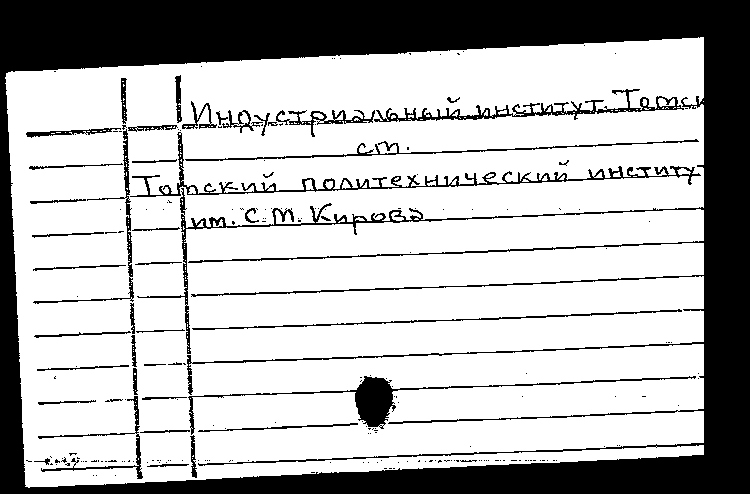 Индустриальный институт. Томск
ст.
Томский политехнический институт
им. С.М. Кирова